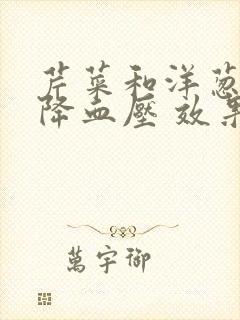 芹菜和洋葱
降血壓 效果
萬宇御